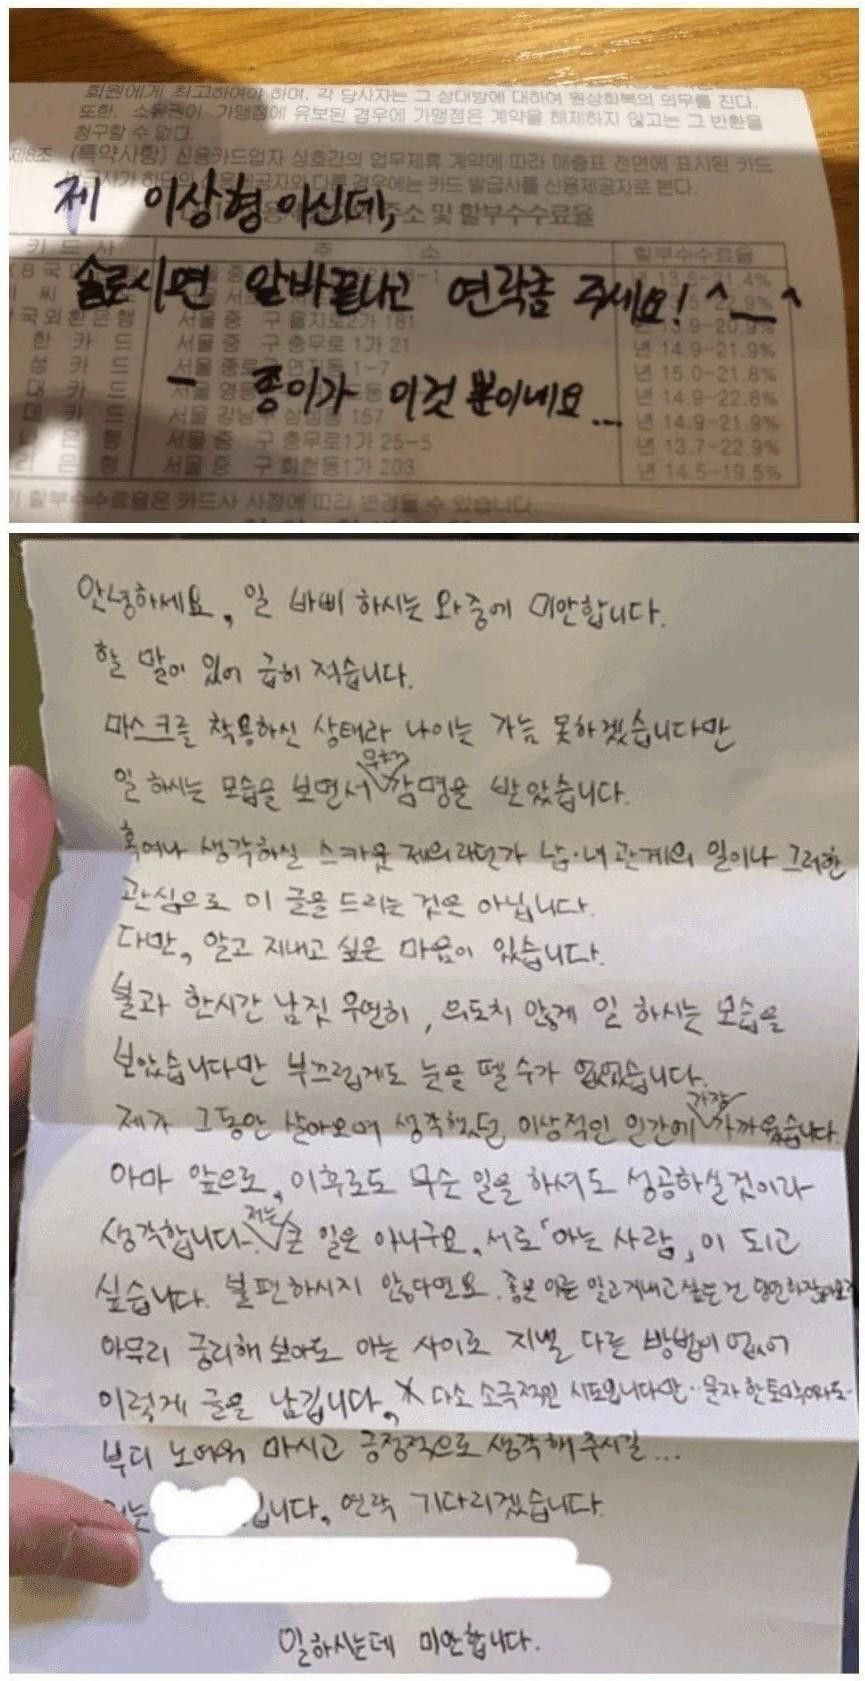 회원에게 최고하여야 하며, 각 당사자는 그 상대방에 대하여 원상회복의 의무를 진다.
또한, 소유권이 가맹점에 유보된 경우에 가맹점은 계약을 해제하지 않고는 그 반환을
청구할 수 없다.
제8조 (특약사항) 신용카드업자 상호간의 업무제휴 계약에 따라 매출표 전면에 표시된 카드
다른 경우에는 카드 발급사를 신용제공자로 본다.
주소 및 할부수수료율
제 이상형이신데,
카드사 주 소 할부수수료율
솔로시면 알바끝나고 연락좀 주세요! ^__^
국외환은행 서울 중 구 을지로2가 181
한카드 서울 중 구 충무로 1가 21 년 14.9-21.9%
성카드 서울 종로구 1-7 년 15.0-21.8%
대카드 서울 영등 년 14.9-22.8%
- 종이가 이것 뿐이네요...
데카드 서울 강남구 157 년 14.9-21.9%
은행 서울 중 구 충무로1가 25-5 년 13.7-22.9%
리은행 서울 중 구 회현동1가 203 년 14.5-19.5%
할부수수료율은 카드사 사정에 따라 변경될 수 있습니다.
안녕하세요, 일 바삐 하시는 와중에 미안합니다.
할 말이 있어 급히 적습니다.
마스크를 착용하신 상태라 나이는 가늠 못하겠습니다만
일 하시는 모습을 보면서 무척 감명을 받았습니다.
혹여나 생각하실 스카웃 제의라던가 남·녀 관계의 일이나 그러한
관심으로 이 글을 드리는 것은 아닙니다.
다만, 알고 지내고 싶은 마음이 있습니다.
불과 한시간 남짓 우연히, 의도치 않게 일 하시는 모습을
보았습니다만 부끄럽게도 눈을 뗄 수가 없었습니다.
제가 그동안 살아오며 생각했던 이상적인 인간에 가장 가까웠습니다.
아마 앞으로, 이후로도 무슨 일을 하셔도 성공하실 것이라
생각합니다. 저는 큰 일은 아니구요, 서로 「아는 사람」이 되고
싶습니다. 불편하시지 않다면요. 좋은 이를 알고 지내고 싶은건 당연하잖아요
아무리 궁리해 보아도 아는 사이로 지낼 다른 방법이 없어
이렇게 글을 남깁니다. 다소 소극적인 시도입니다만.. 문자 한토막이라도..
부디 노여워 마시고 긍정적으로 생각해 주시길...
입니다. 연락 기다리겠습니다.
일하시는데 미안합니다.